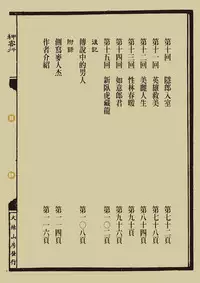 第十回 隱郎入室 第七十二頁
第十一回 英雄救美 第七十八頁
第十二回 美麗人生 第八十四頁
第十三回 性林春暖 第九十頁
第十四回 如意郎君 第九十六頁
第十五回 新臥虎藏龍 第一〇二頁
後記
傳說中的男人 第一〇八頁
附錄
側寫麥人杰 第一一四頁
作者介紹 第一一六頁
狎客行
大辣山房發行